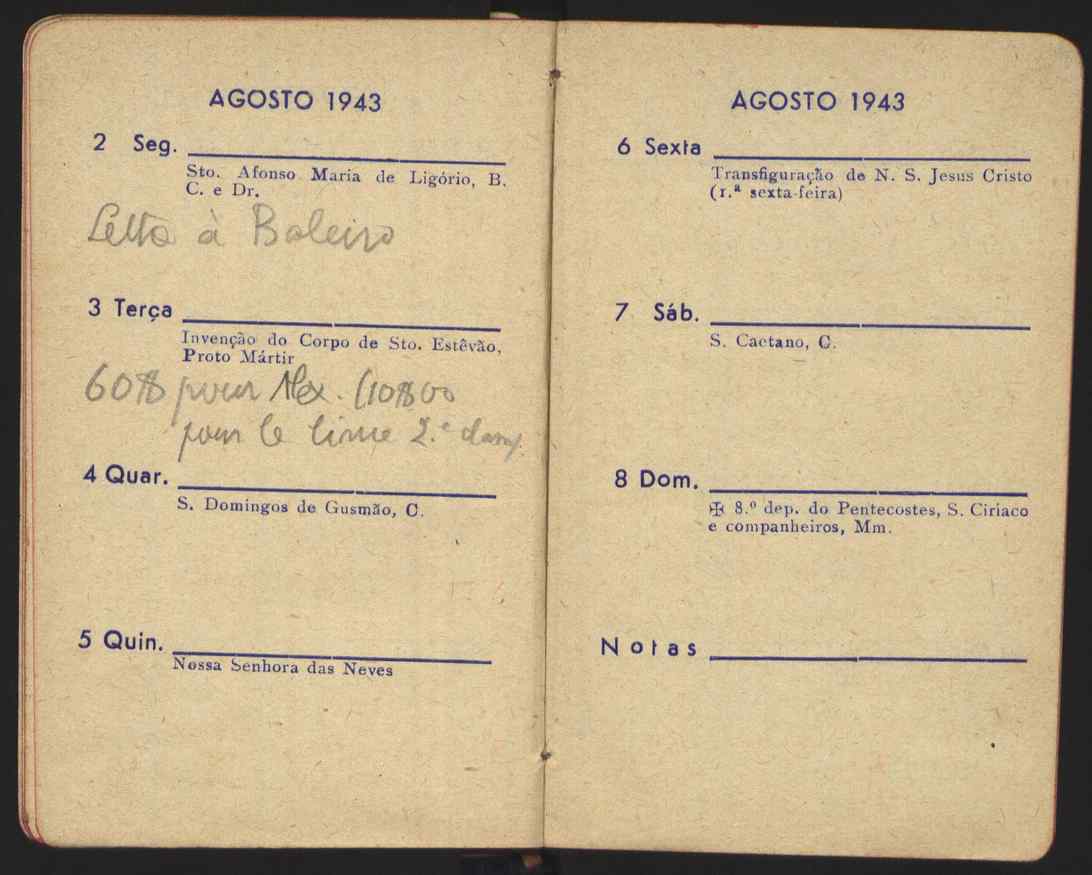 AGOSTO 1943
2 Seg.
Sto. Afonso Maria de Ligório, B.
C. e Dr.
à Baleiro
3 Terça
Invenção do Corpo de Sto. Estêvão,
Proto Mártir
60$ pour Alex. (10$00
pour le livre 2.e
4 Quar.
S. Domingos de Gusmão, C.
5 Quin.
Nossa Senhora das Neves
AGOSTO 1943
6 Sexta
Transfiguração de N. S. Jesus Cristo
(1.ª sexta-feira)
7 Sáb.
S. Caetano, C.
8 Dom.
✠ 8.º dep. do Pentecostes, S. Ciriaco
e companheiros, Mm.
Notas